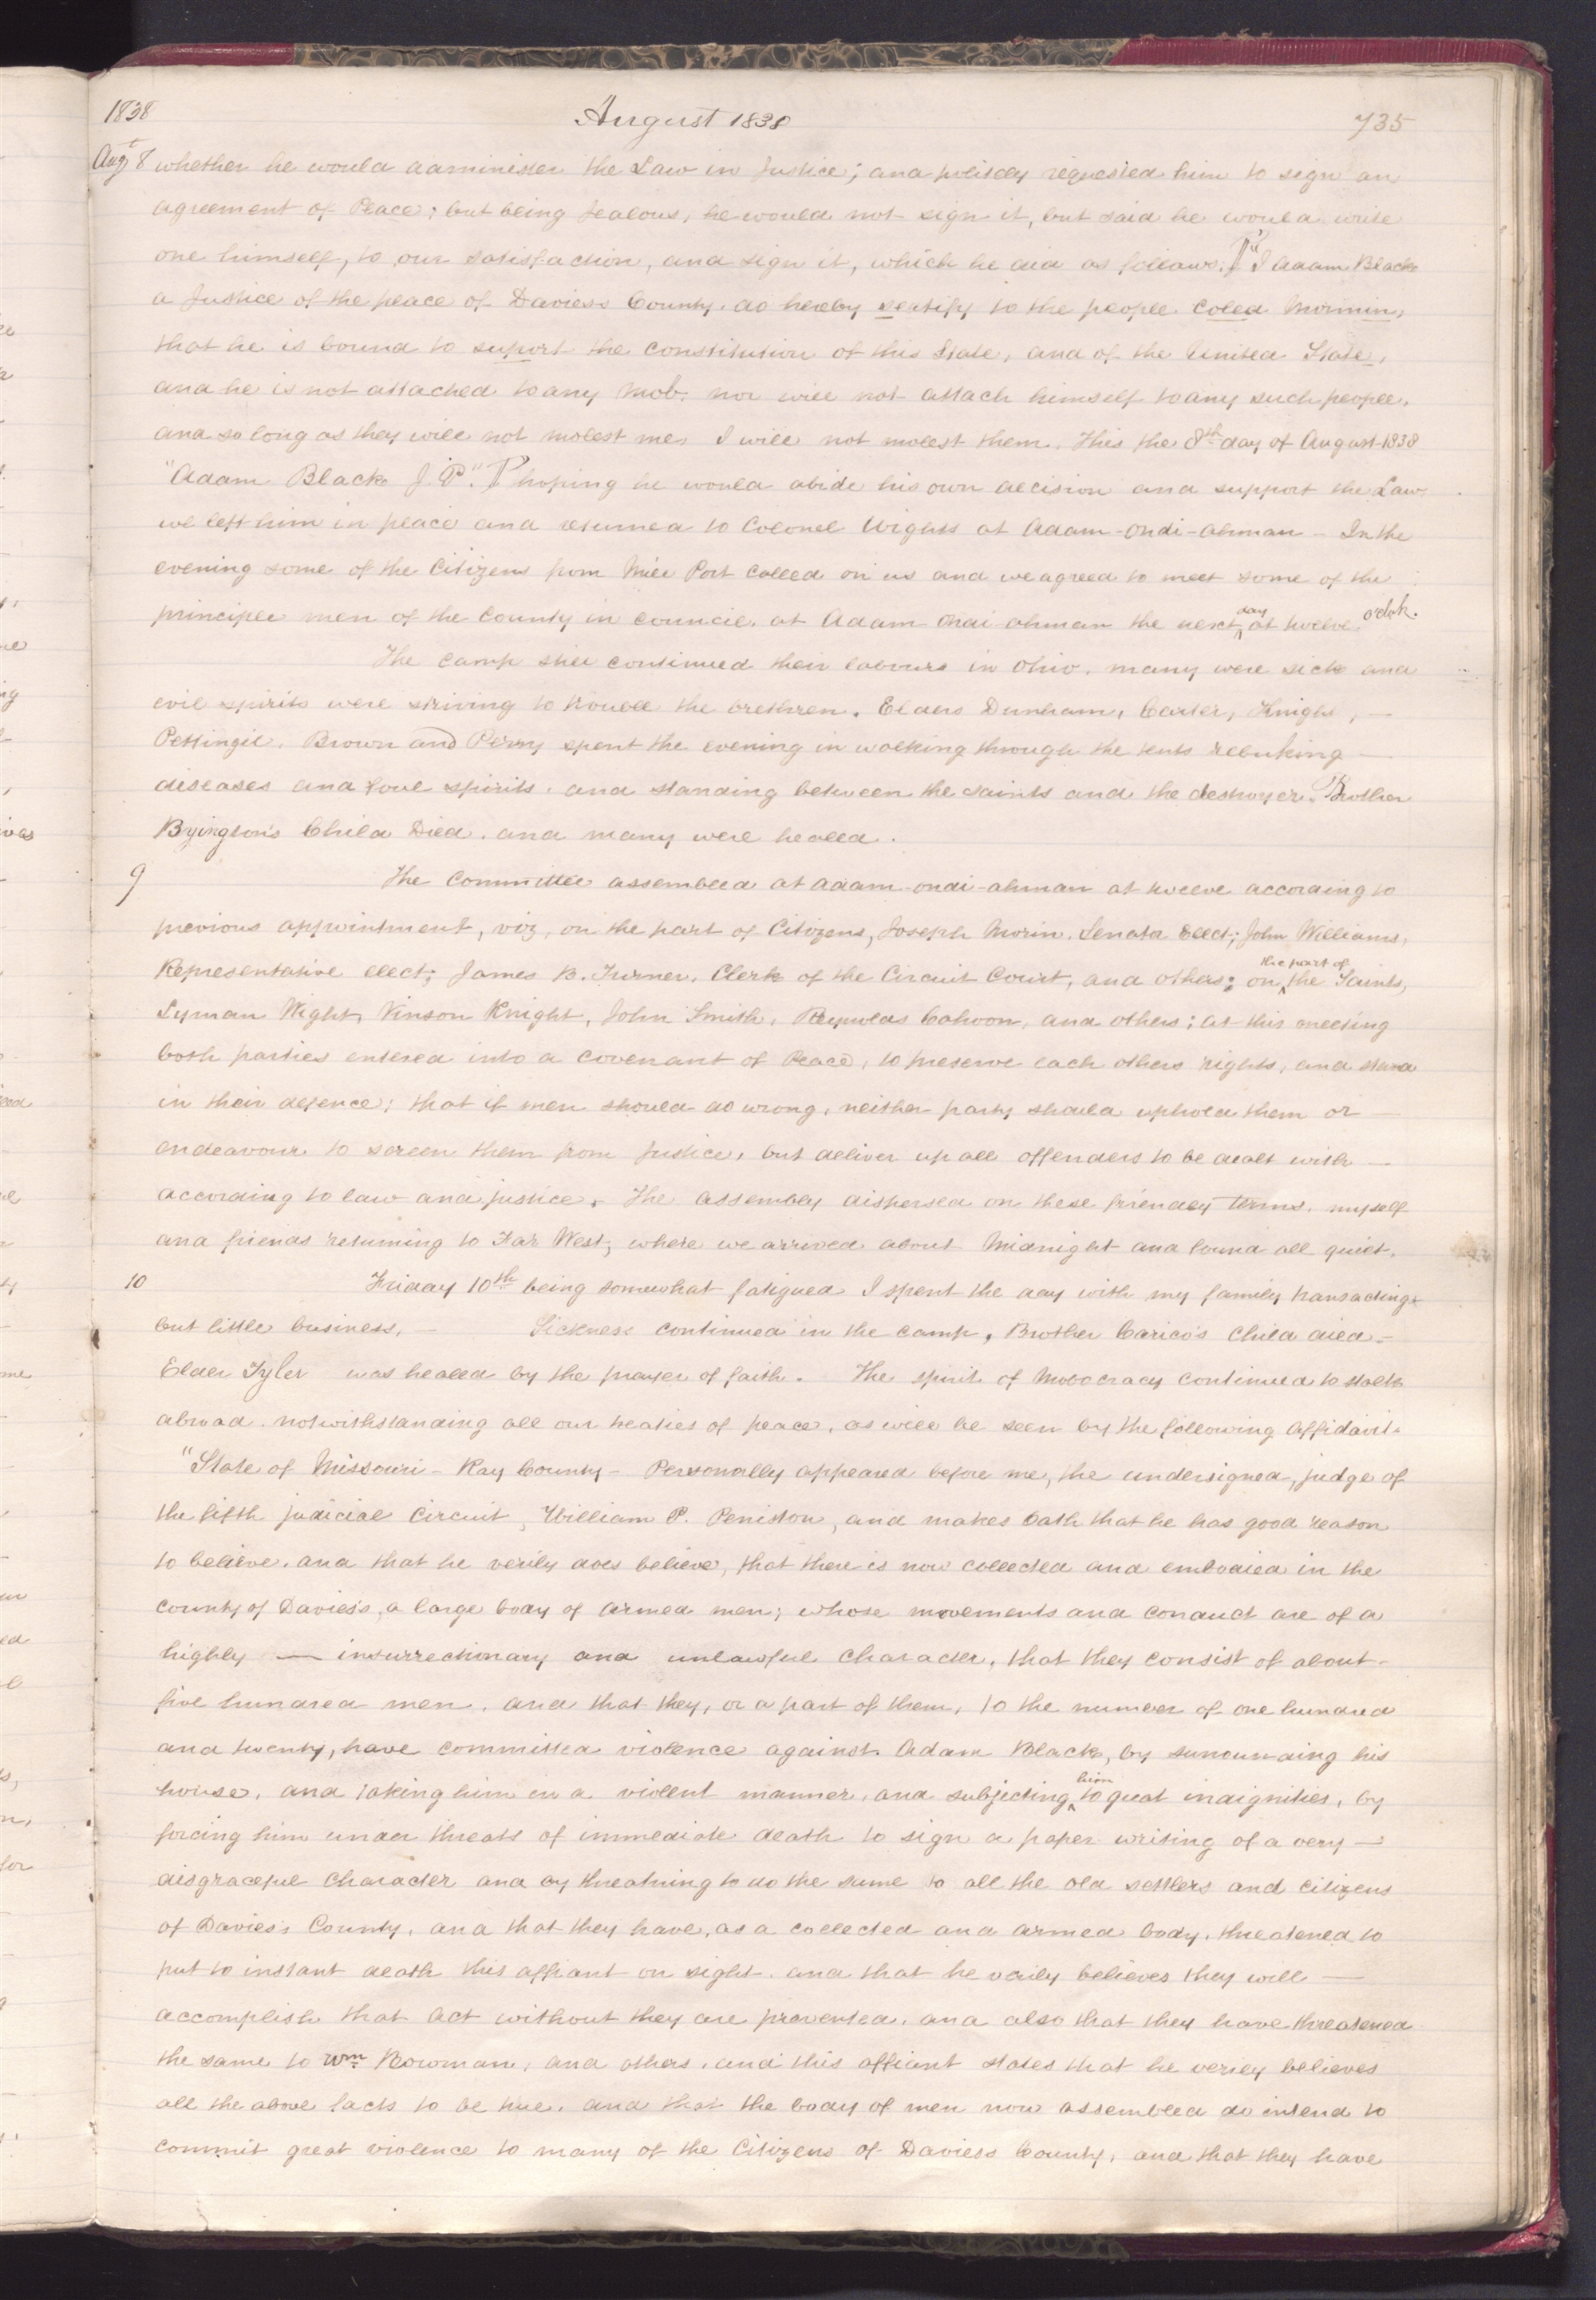 1838 August 1838 735
Augt 8 whether he would administer the Law in Justice; and politely requested him to sign an
agreement of Peace; but being Jealous, he would not sign it, but said he would write
one himself, to our satisfaction, and sign it, which he did as follows: ¶ "I Adam Black
a Justice of the peace of Daviess County, do hereby sertify to the people coled Mormin,
that he is bound to suport the constitution of this State, and of the United State,
and he is not attached to any Mob, nor will not attach himself to any such people,
and so long as they will not molest me, I will not molest them. This the 8th day of August 1838
"Adam Black J. P." ¶ hoping he would abide his own decision and support the Law
we left him in peace and returned to Colonel Wights at Adam-Ondi-Ahman – In the
evening some of the Citizens from Mill Port called on us and we agreed to meet some of the
principle men of the County in council, at Adam Ondi Ahman the next day at twelve o'clock.
The camp still continued their labours in Ohio, many were sick and
evil spirits were striving to trouble the brethren. Elders Dunham, Carter, Knight, —
Pettingil, Brown and Perry spent the evening in walking through the tents rebuking —
diseases and foul spirits, and standing between the saints and the destroyer. Brother
Byington's Child Died, and many were healed.
9 The Committee assembled at Adam-ondi-ahman at twelve according to
previous appointment, viz, on the part of Citizens, Joseph Morin, Senator Elect; John Williams,
Representative elect; James B. Turner, Clerk of the Circuit Court, and others; on the part of the Saints,
Lyman Wight, Vinson Knight, John Smith, Reynolds Cahoon, and others; at this meeting
both parties entered into a covenant of Peace, to preserve each others rights, and stand
in their defence; that if men should do wrong, neither party should uphold them or —
endeavour to screen them from Justice, but deliver up all offenders to be dealt with —
according to law and justice. The assembly dispersed on these friendly terms, myself
and friends returning to Far West, where we arrived about Midnight and found all quiet.
10 Friday 10th being somewhat fatigued I spent the day with my family transacting
but little business. – Sickness continued in the camp, Brother Carico's child died –
Elder Tyler was healed by the prayer of faith. The spirit of Mobocracy continued to stalk
abroad notwithstanding all our treaties of peace, as will be seen by the following affidavit.
"State of Missouri – Ray County – Personally appeared before me, the undersigned, judge of
the fifth judicial Circuit, William P. Peniston, and makes oath that he has good reason
to believe, and that he verily does believe, that there is now collected and embodied in the
county of Daviess, a large body of armed men; whose movements and conduct are of a
highly — insurrectionary and unlawful character, that they consist of about –
five hundred men, and that they, or a part of them, to the number of one hundred
and twenty, have committed violence against Adam Black, by surrounding his
house, and taking him in a violent manner, and subjecting him to great indignities, by
forcing him under threats of immediate death to sign a paper writing of a very —
disgraceful character and by threatning to do the same to all the old settlers and citizens
of Daviess County, and that they have, as a collected and armed body, threatened to
put to instant death this affiant on sight, and that he verily believes they will —
accomplish that act without they are prevented, and also that they have threatened
the same to Wm Bowman, and others, and this affiant states that he verily believes
all the above facts to be true, and that the body of men now assembled do intend to
commit great violence to many of the Citizens of Daviess County, and that they have